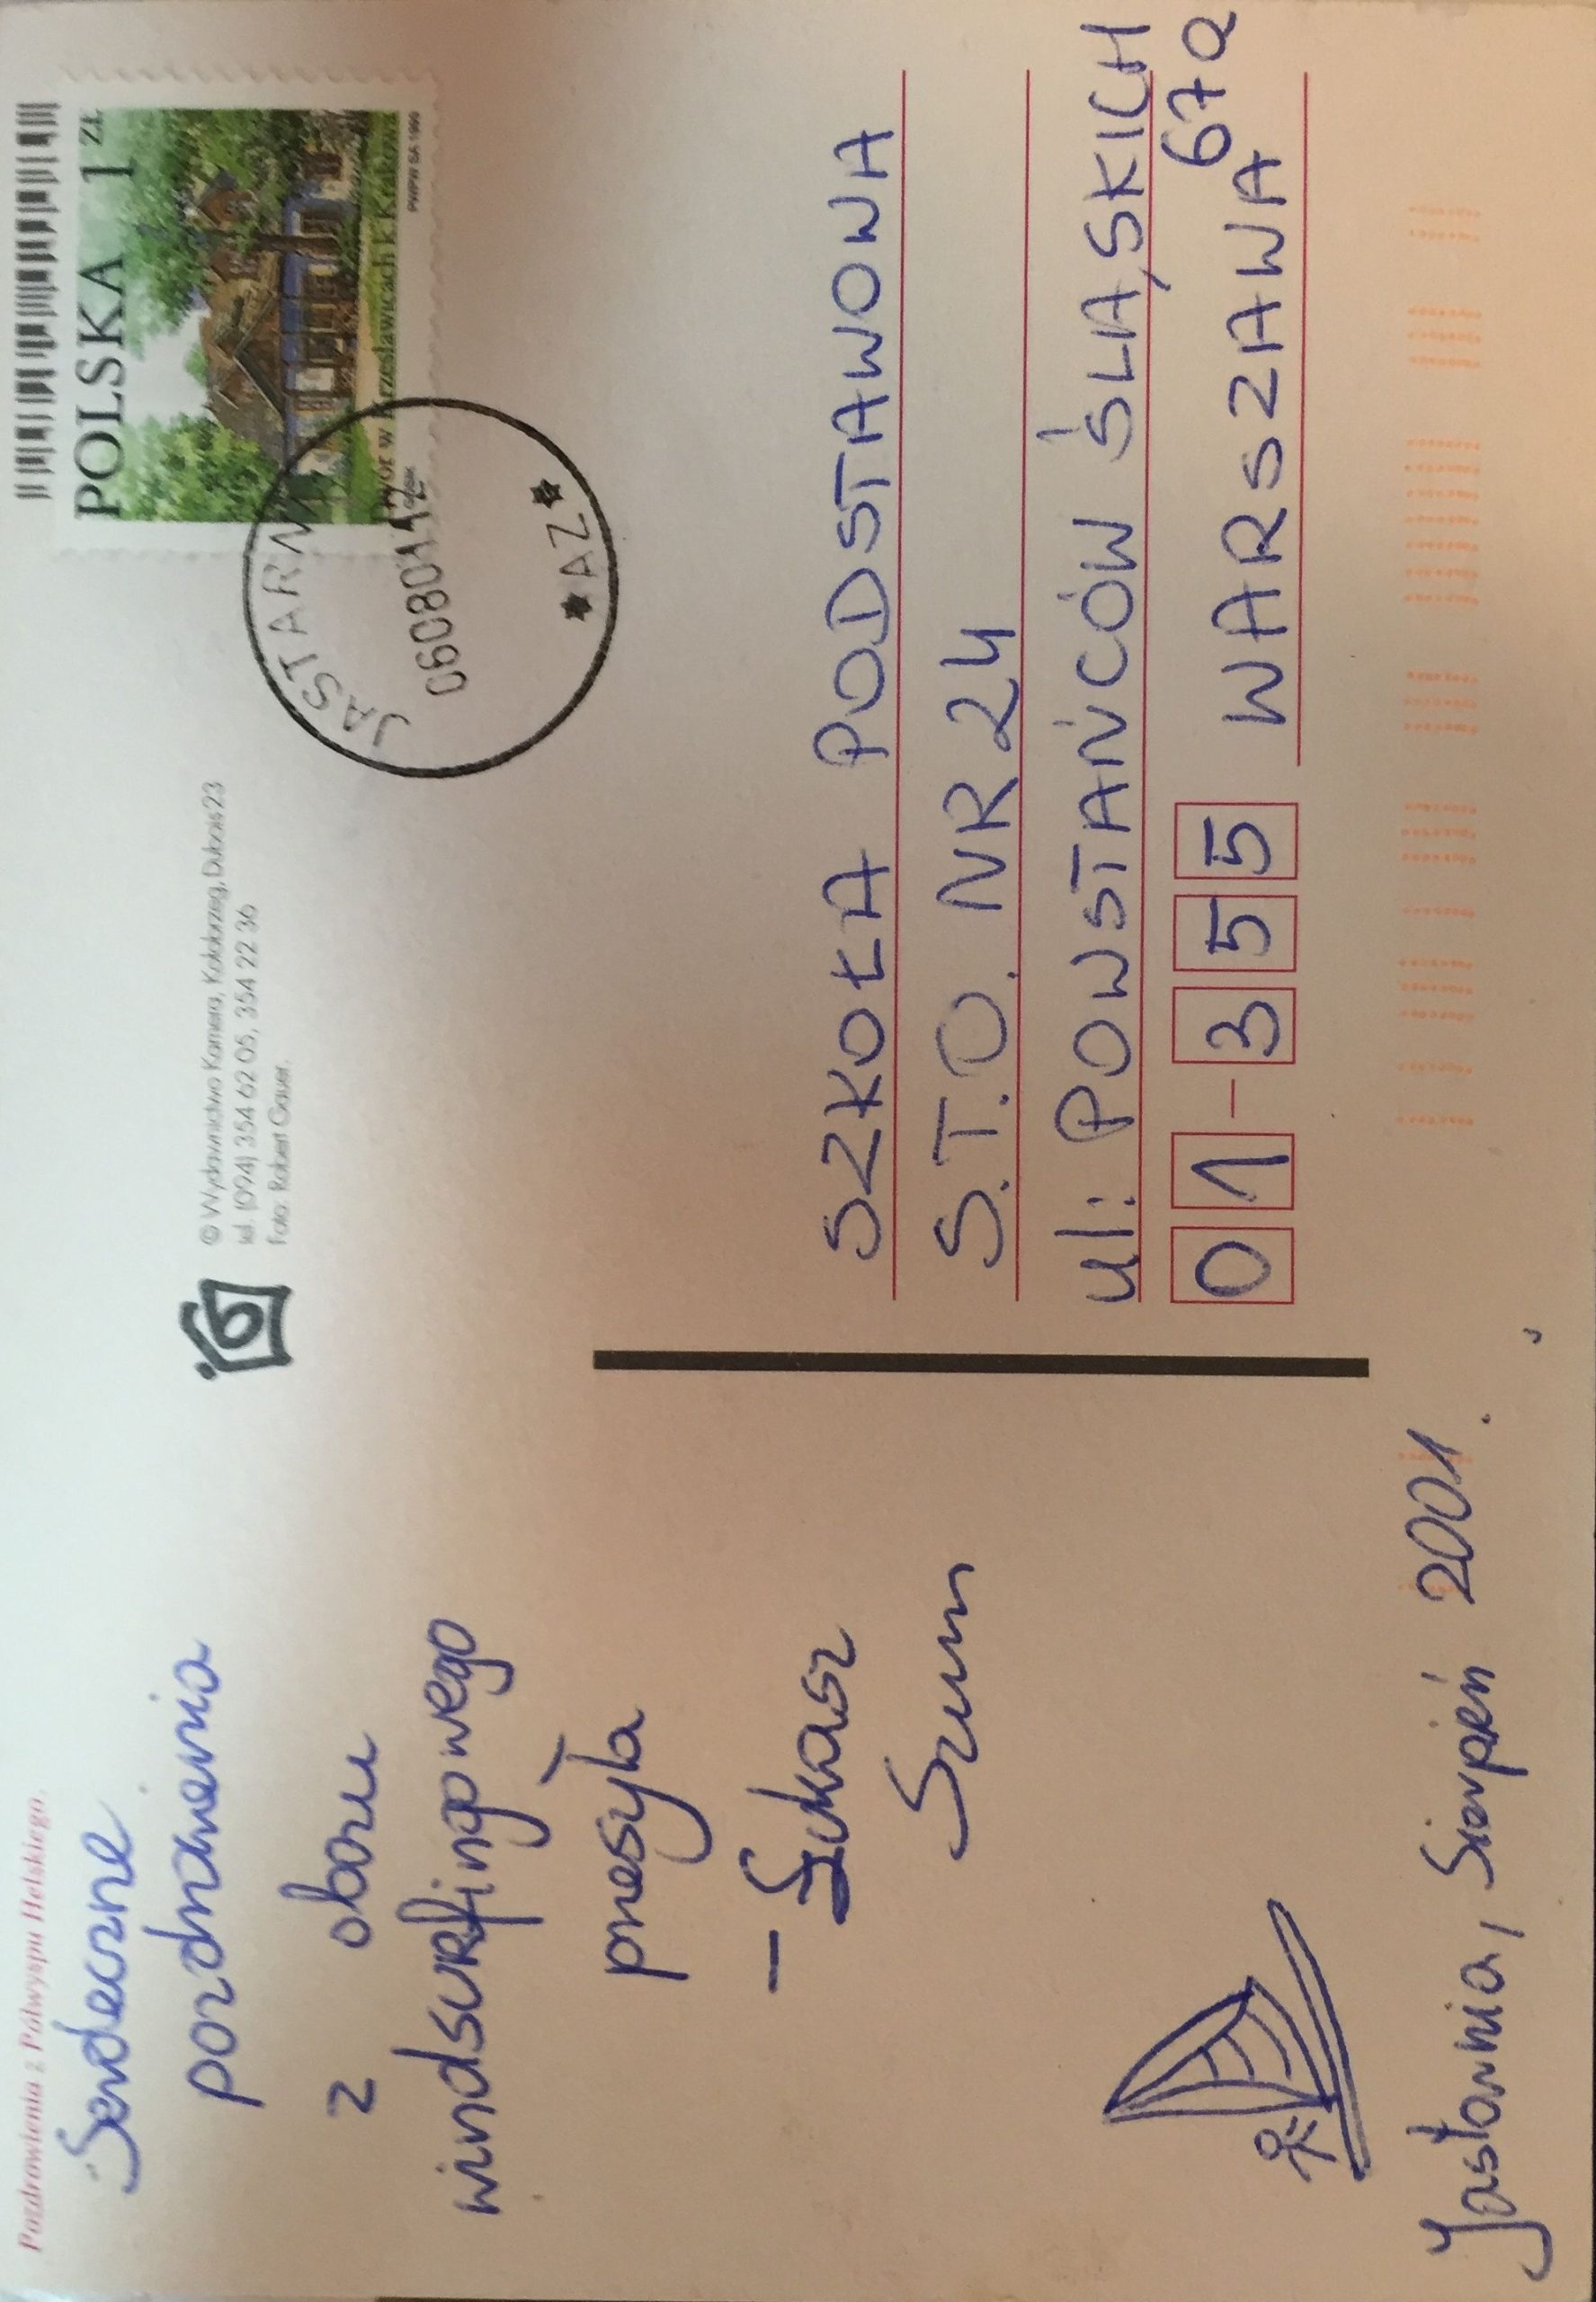 Pozdrowienia z Półwyspu Helskiego.
Serdeczne
pozdrowienia
z obozu
windsurfingowego
przesyła
- Łukasz
Szum
Jastarnia, Sierpień 2001.
© Wydawnictwo Kamera, Kołobrzeg, Dubois 23
tel. (094) 354 62 05, 354 22 36
Foto: Robert Gauer.
POLSKA 1 ZŁ
Dwór w Krzesławicach k. Krakowa
PWPW SA 1999
JASTARNIA
060801
*AZ*
SZKOŁA PODSTAWOWA
S.T.O. NR 24
ul: POWSTAŃCÓW ŚLĄSKICH
67a
01-355 WARSZAWA